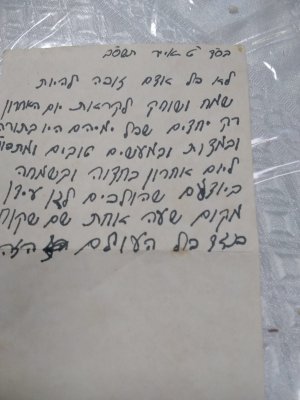 בסד ט אייר תשסב
לא כל אדם זוכה להיות
שמח ושוחק לקראת יום האחרון
רק יחידים שכל ימיהם היו בתורה
ובמצות ובמעשים טובים
ליום אחרון בחדוה ובשמחה
ביודעם שהולכים לגן עדן
מקום שעה אחת שם שקול
כנגד כל העולם הזה